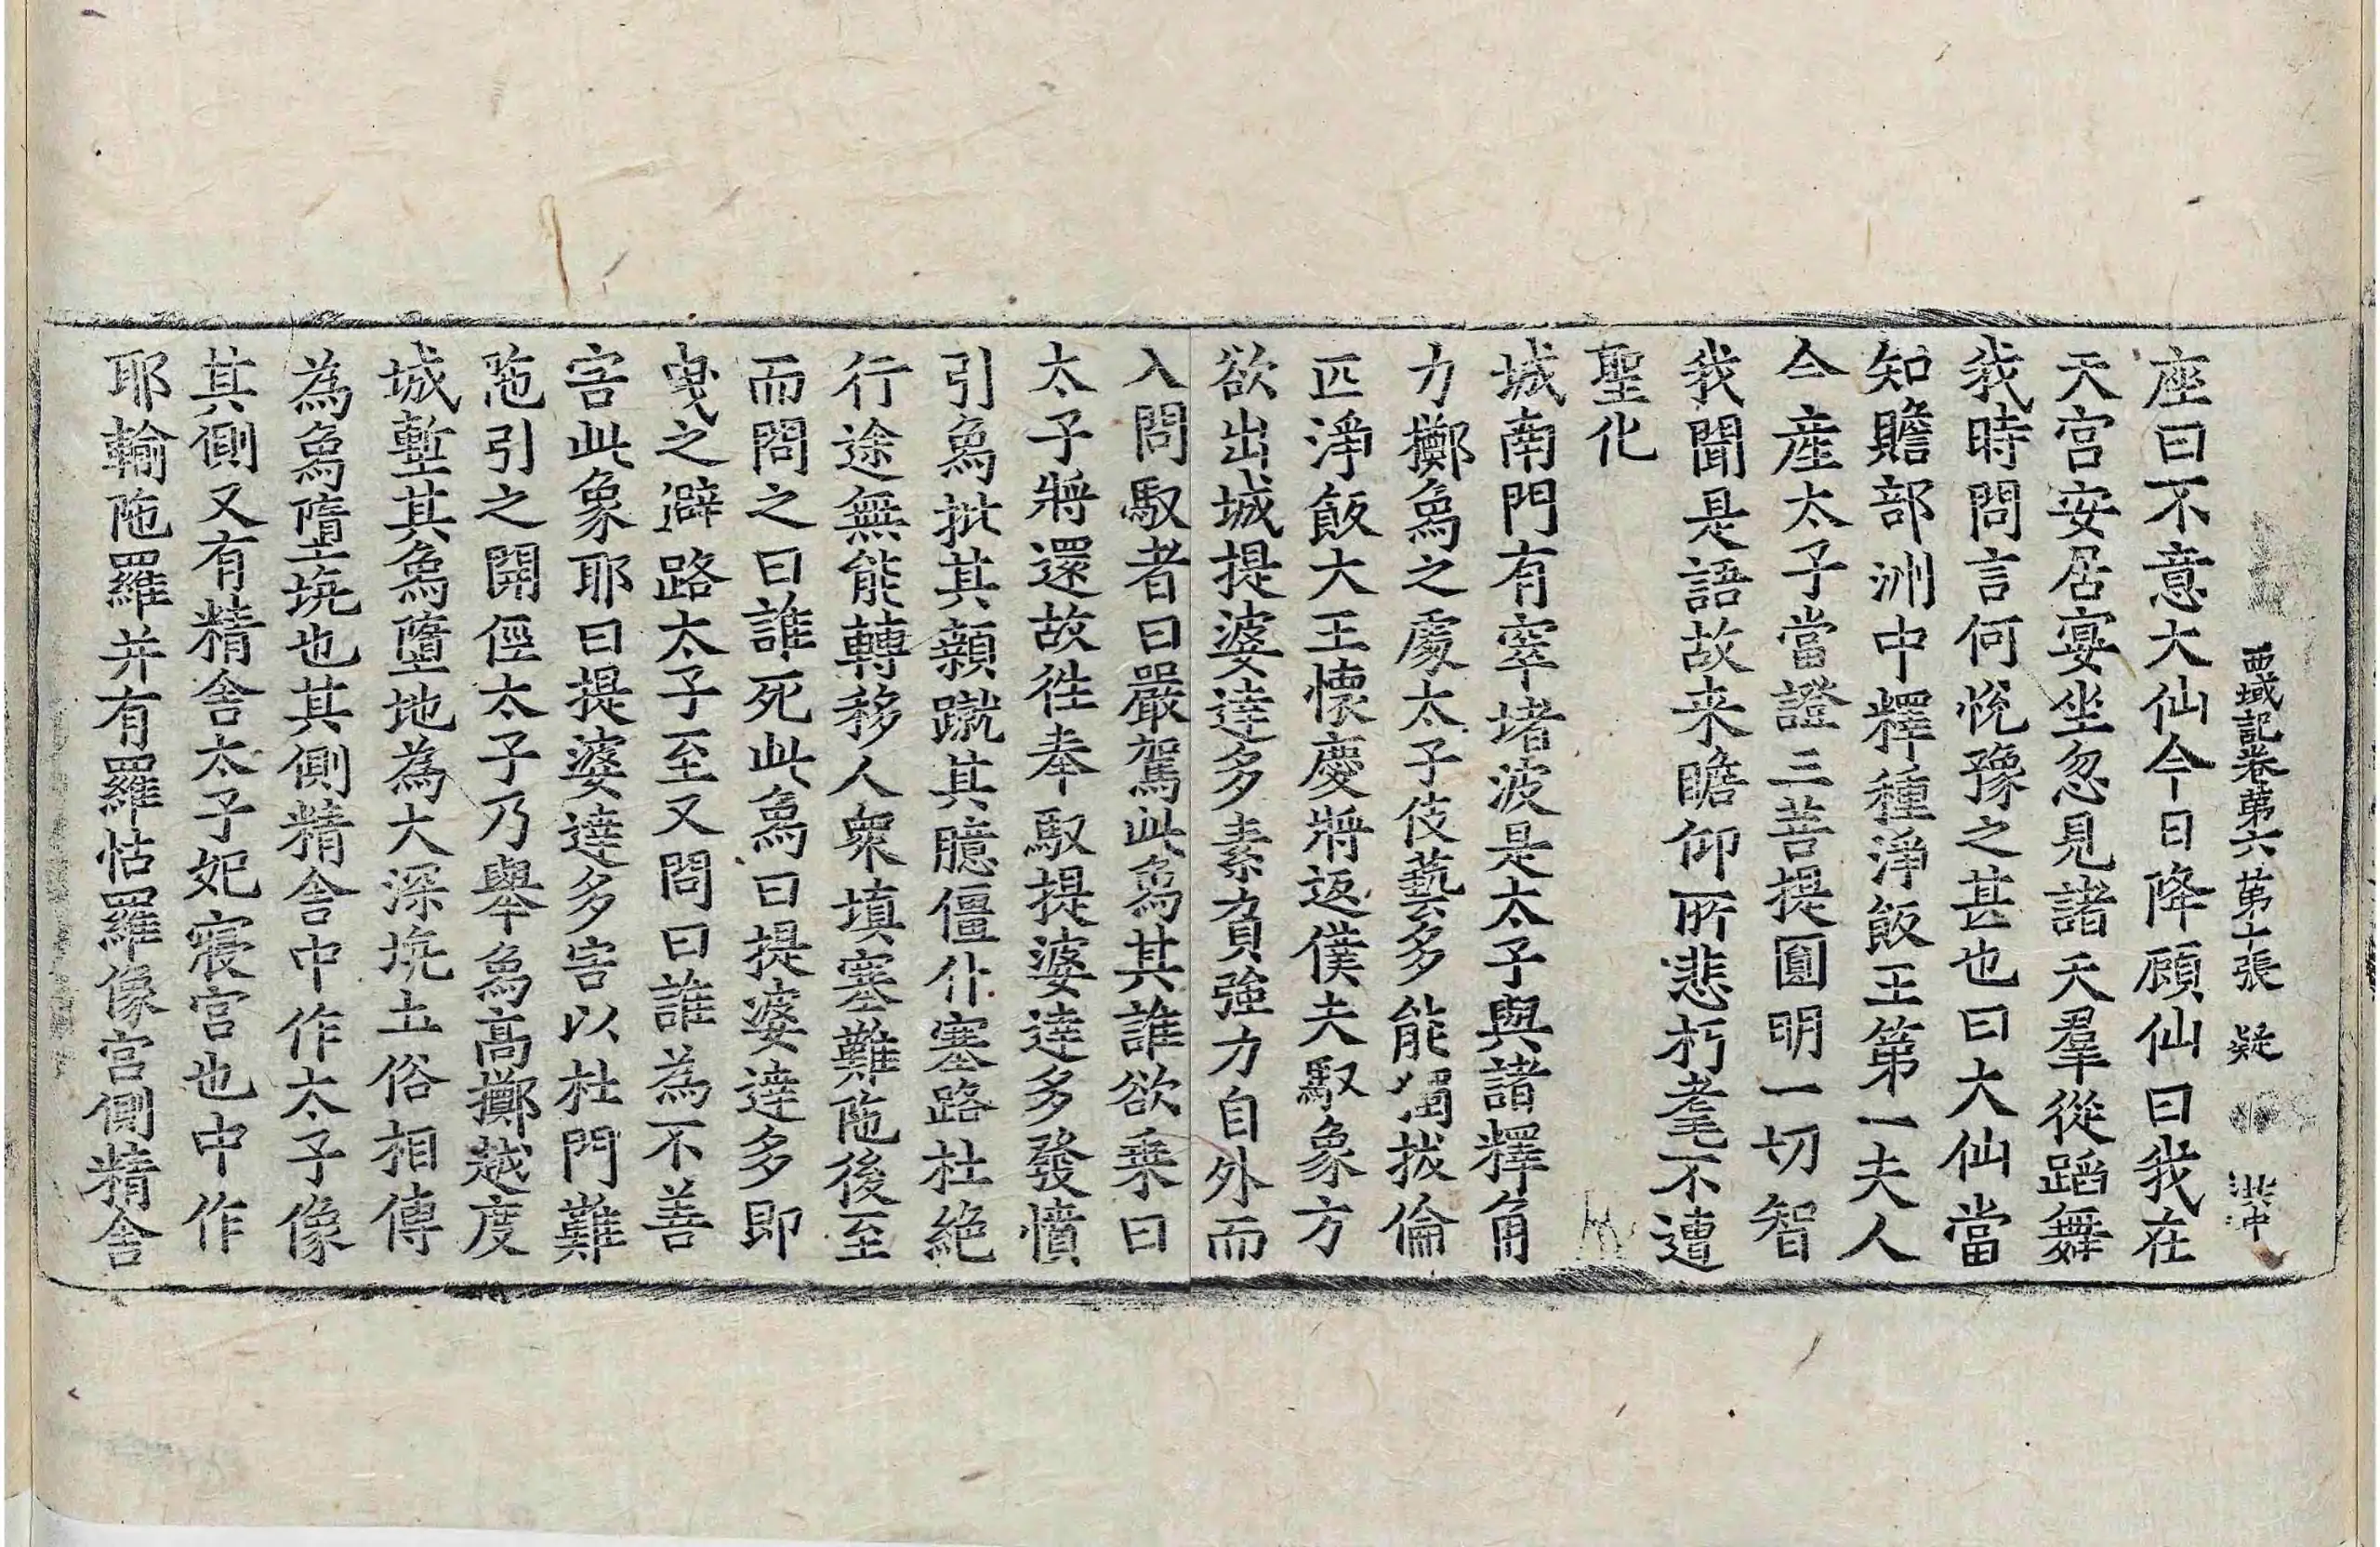 西域記卷第六 第十張 疑
座曰不意大仙今日降顧仙曰我在
天宮安居宴坐忽見諸天羣從蹈舞
我時問言何悅豫之甚也曰大仙當
知贍部洲中釋種淨飯王第一夫人
今產太子當證三菩提圓明一切智
我聞是語故来瞻仰所悲朽耄不遭
聖化
城南門有窣堵波是太子與諸釋角
力擲為之處太子伎藝多能獨拔倫
匹淨飯大王懷慶將返僕夫馭象方
欲出城提婆達多素負強力自外而
入問馭者曰嚴駕此為其誰欲乗曰
太子將還故徃奉馭提婆達多發憤
引為批其顙蹴其臆僵仆塞路杜絕
行途無能轉移人衆填塞難陁後至
而問之曰誰死此為曰提婆達多即
曳之避路太子至又問曰誰為不善
害此象耶曰提婆達多害以杜門難
陁引之開徑太子乃舉為高擲越度
城塹其為墮地為大深坑土俗相傳
為為墮坑也其側精舍中作太子像
其側又有精舍太子妃寢宮也中作
耶輸陁羅并有羅怙羅像宮側精舍